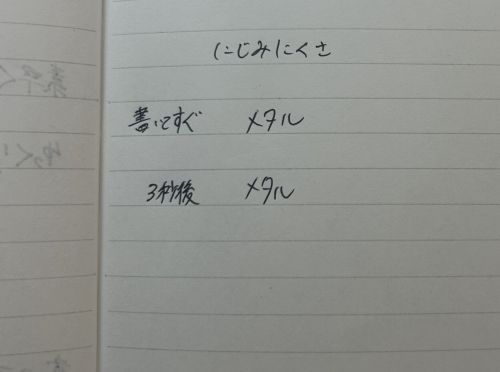 にじみにくさ
書いてすぐ メタル
3秒後 メタル